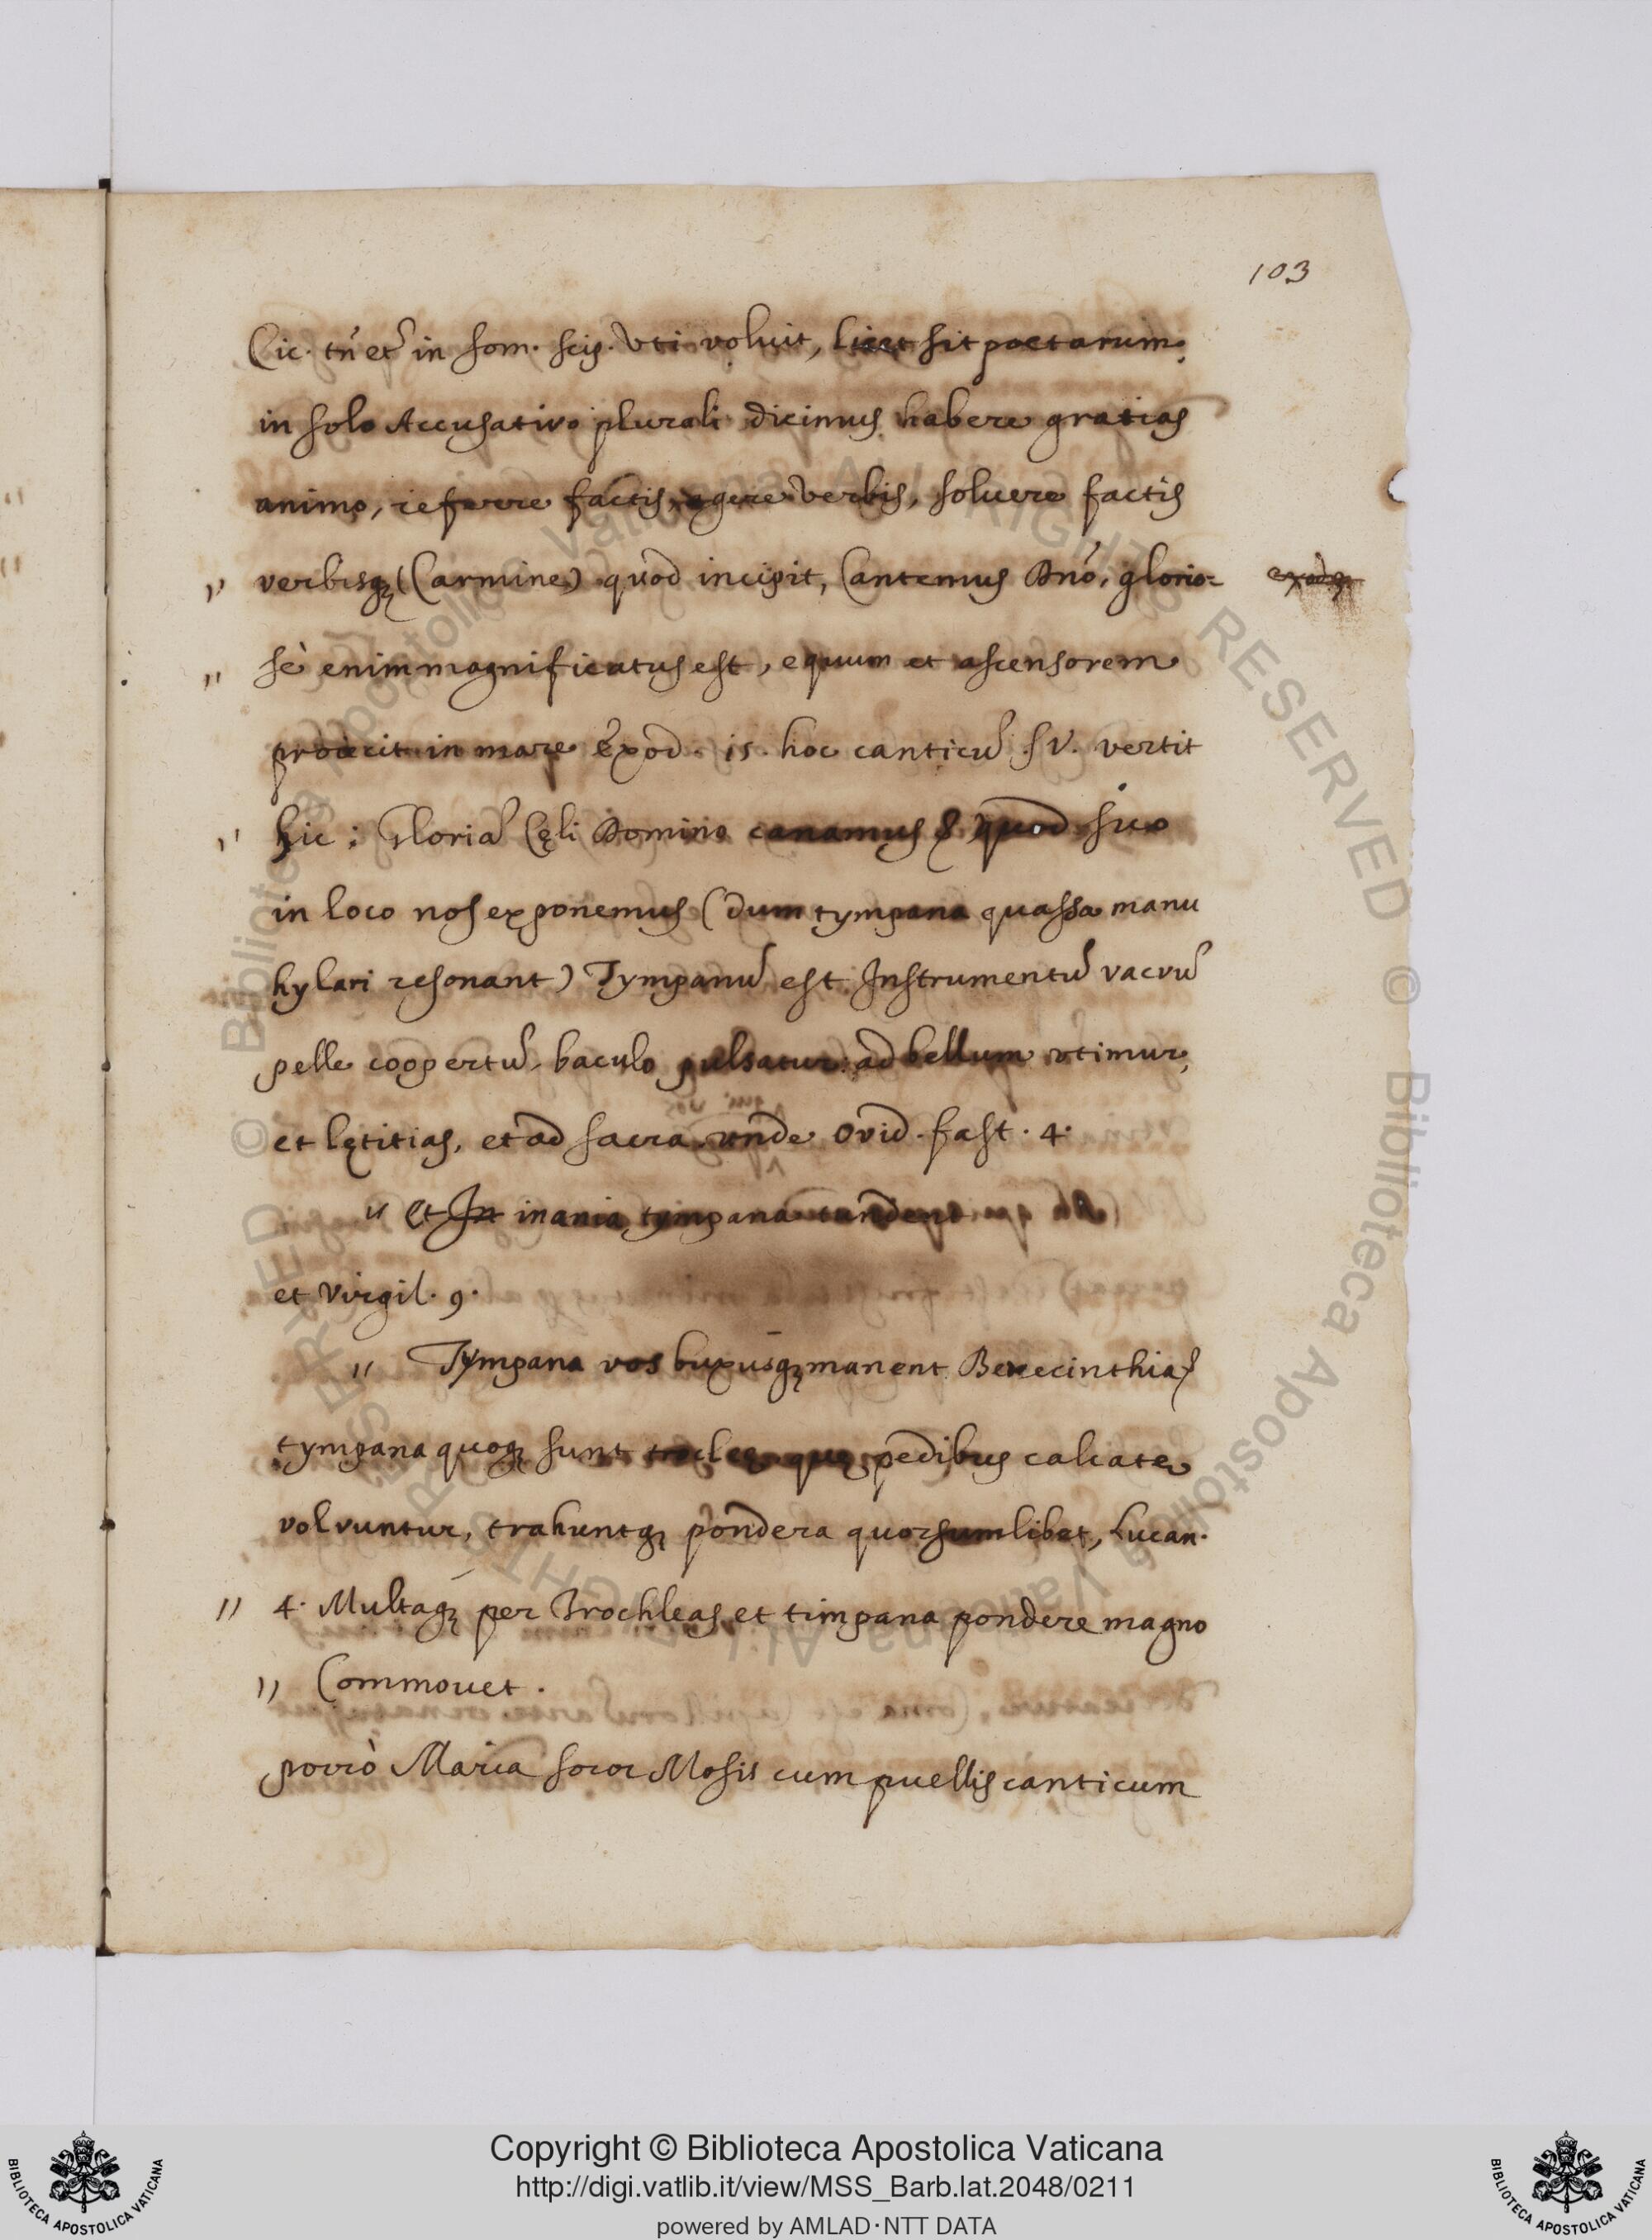 103
Cic. tñ et̃ in som. scip. vti voluit, licet sit poetarum.
in solo Accusativo plurali dicimus habere gratias
animo, referre factis, agere verbis, soluere factis
" verbisq; (Carmine) quod incipit, Cantemus Dño, glorio= exod.
" sè enim magnificatus est, equum et ascensorem
proiecit in mare Exod. 15. hoc canticũ S.V. vertit
" hic : Gloriã Cęli Domino canamus & quod suo
in loco nos exponemus (dum tympana quassa manu
hylari resonant) Tympanũ est Instrumentũ vacuũ
pelle coopertũ, baculo pulsatur: ad bellum vtimur,
et lętitias, et ad sacra vnde Ovid. fast. 4.
" et In inania tympana tundent
et Virgil. 9.
" Tympana vos buxusq; manent Berecinthia
tympana quoq; sunt troclęę quę pedibus calcatę
volvuntur, trahuntq; pondera quorsumlibet, Lucan.
" 4. Multaq; per Trochleas et timpana pondere magno
" Commouet.
porrò Maria soror Mosis cum puellis canticum
© Biblioteca Apostolica Vaticana ALL RIGHTS RESERVED © Biblioteca Apostolica Vaticana ALL RIGHTS RESERVED
Copyright © Biblioteca Apostolica Vaticana
http://digi.vatlib.it/view/MSS_Barb.lat.2048/0211
powered by AMLAD·NTT DATA
BIBLIOTECA APOSTOLICA VATICANA
BIBLIOTECA APOSTOLICA VATICANA